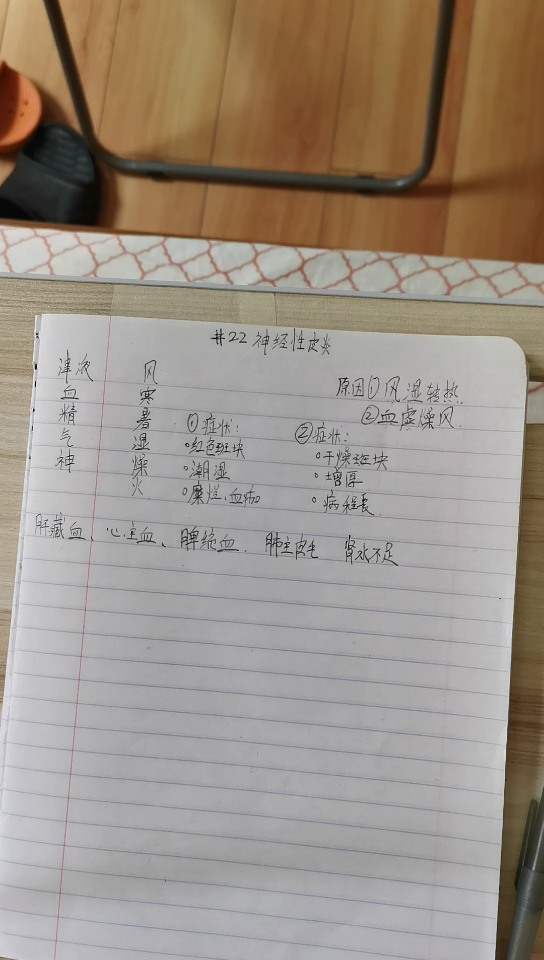 #22 神经性皮炎
津液
血
精
气
神
风
寒
暑
湿
燥
火
原因①风湿转热
②血虚燥风
①症状:
•红色斑块
•潮湿
•糜烂、血痂
②症状:
•干燥斑块
•增厚
•病程长
肝藏血、心主血、脾统血. 肺主皮毛 肾水不足